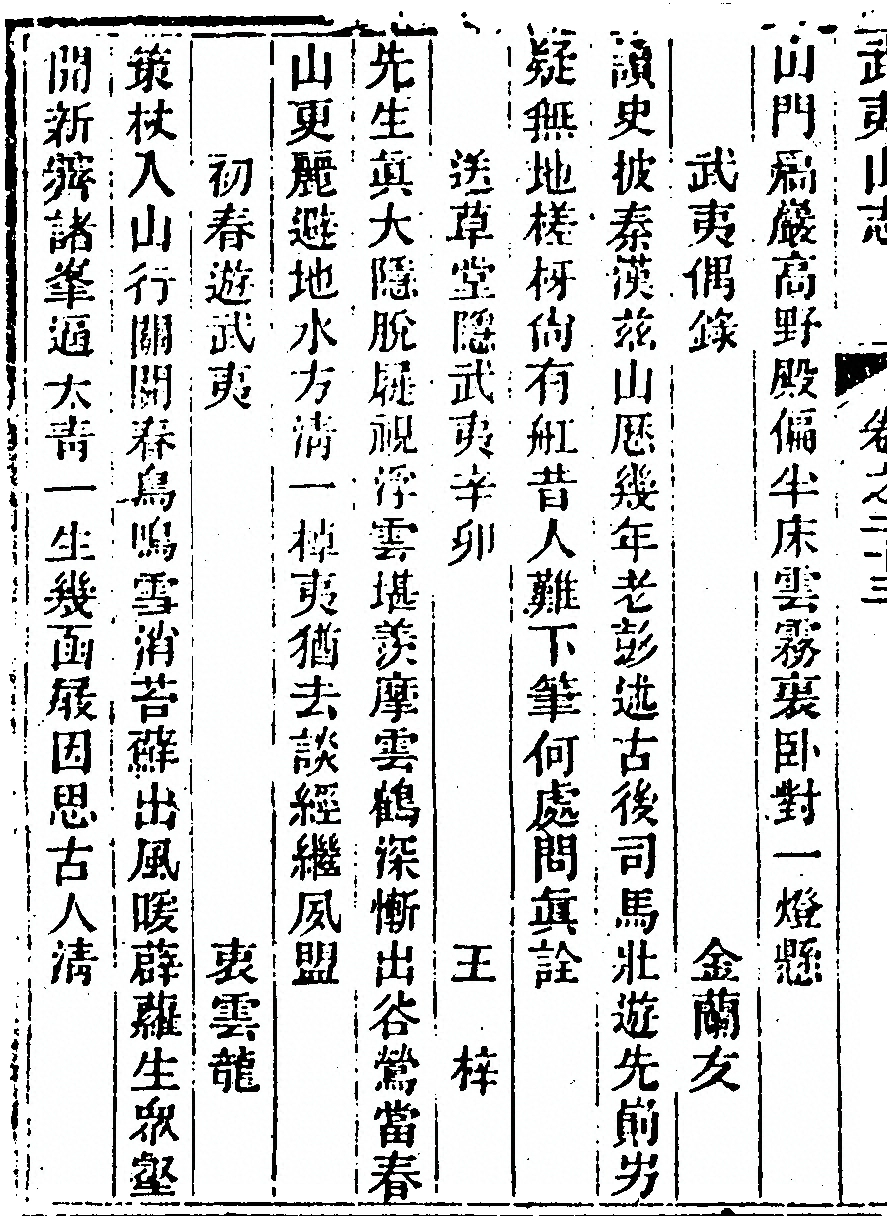 武夷山志 卷之二十三
山門爲巖高野殿偏半床雲霧裏卧對一燈懸
武夷偶錄 金蘭友
讀史披秦漢茲山歷幾年老彭述古後司馬壯遊先崱屴
疑無地槎枒尚有舡昔人難下筆何處問眞詮
送草堂隱武夷辛卯 王梓
先生眞大隱脫屣視浮雲堪羨摩雲鶴深慚出谷鶯當春
山更麗避地水方清一棹夷猶去談經繼夙盟
初春遊武夷 衷雲龍
策杖入山行關關春鳥鳴雪消苔蘚出風暖薜蘿生衆壑
開新霽諸峯逼太青一生幾兩屐因思古人清